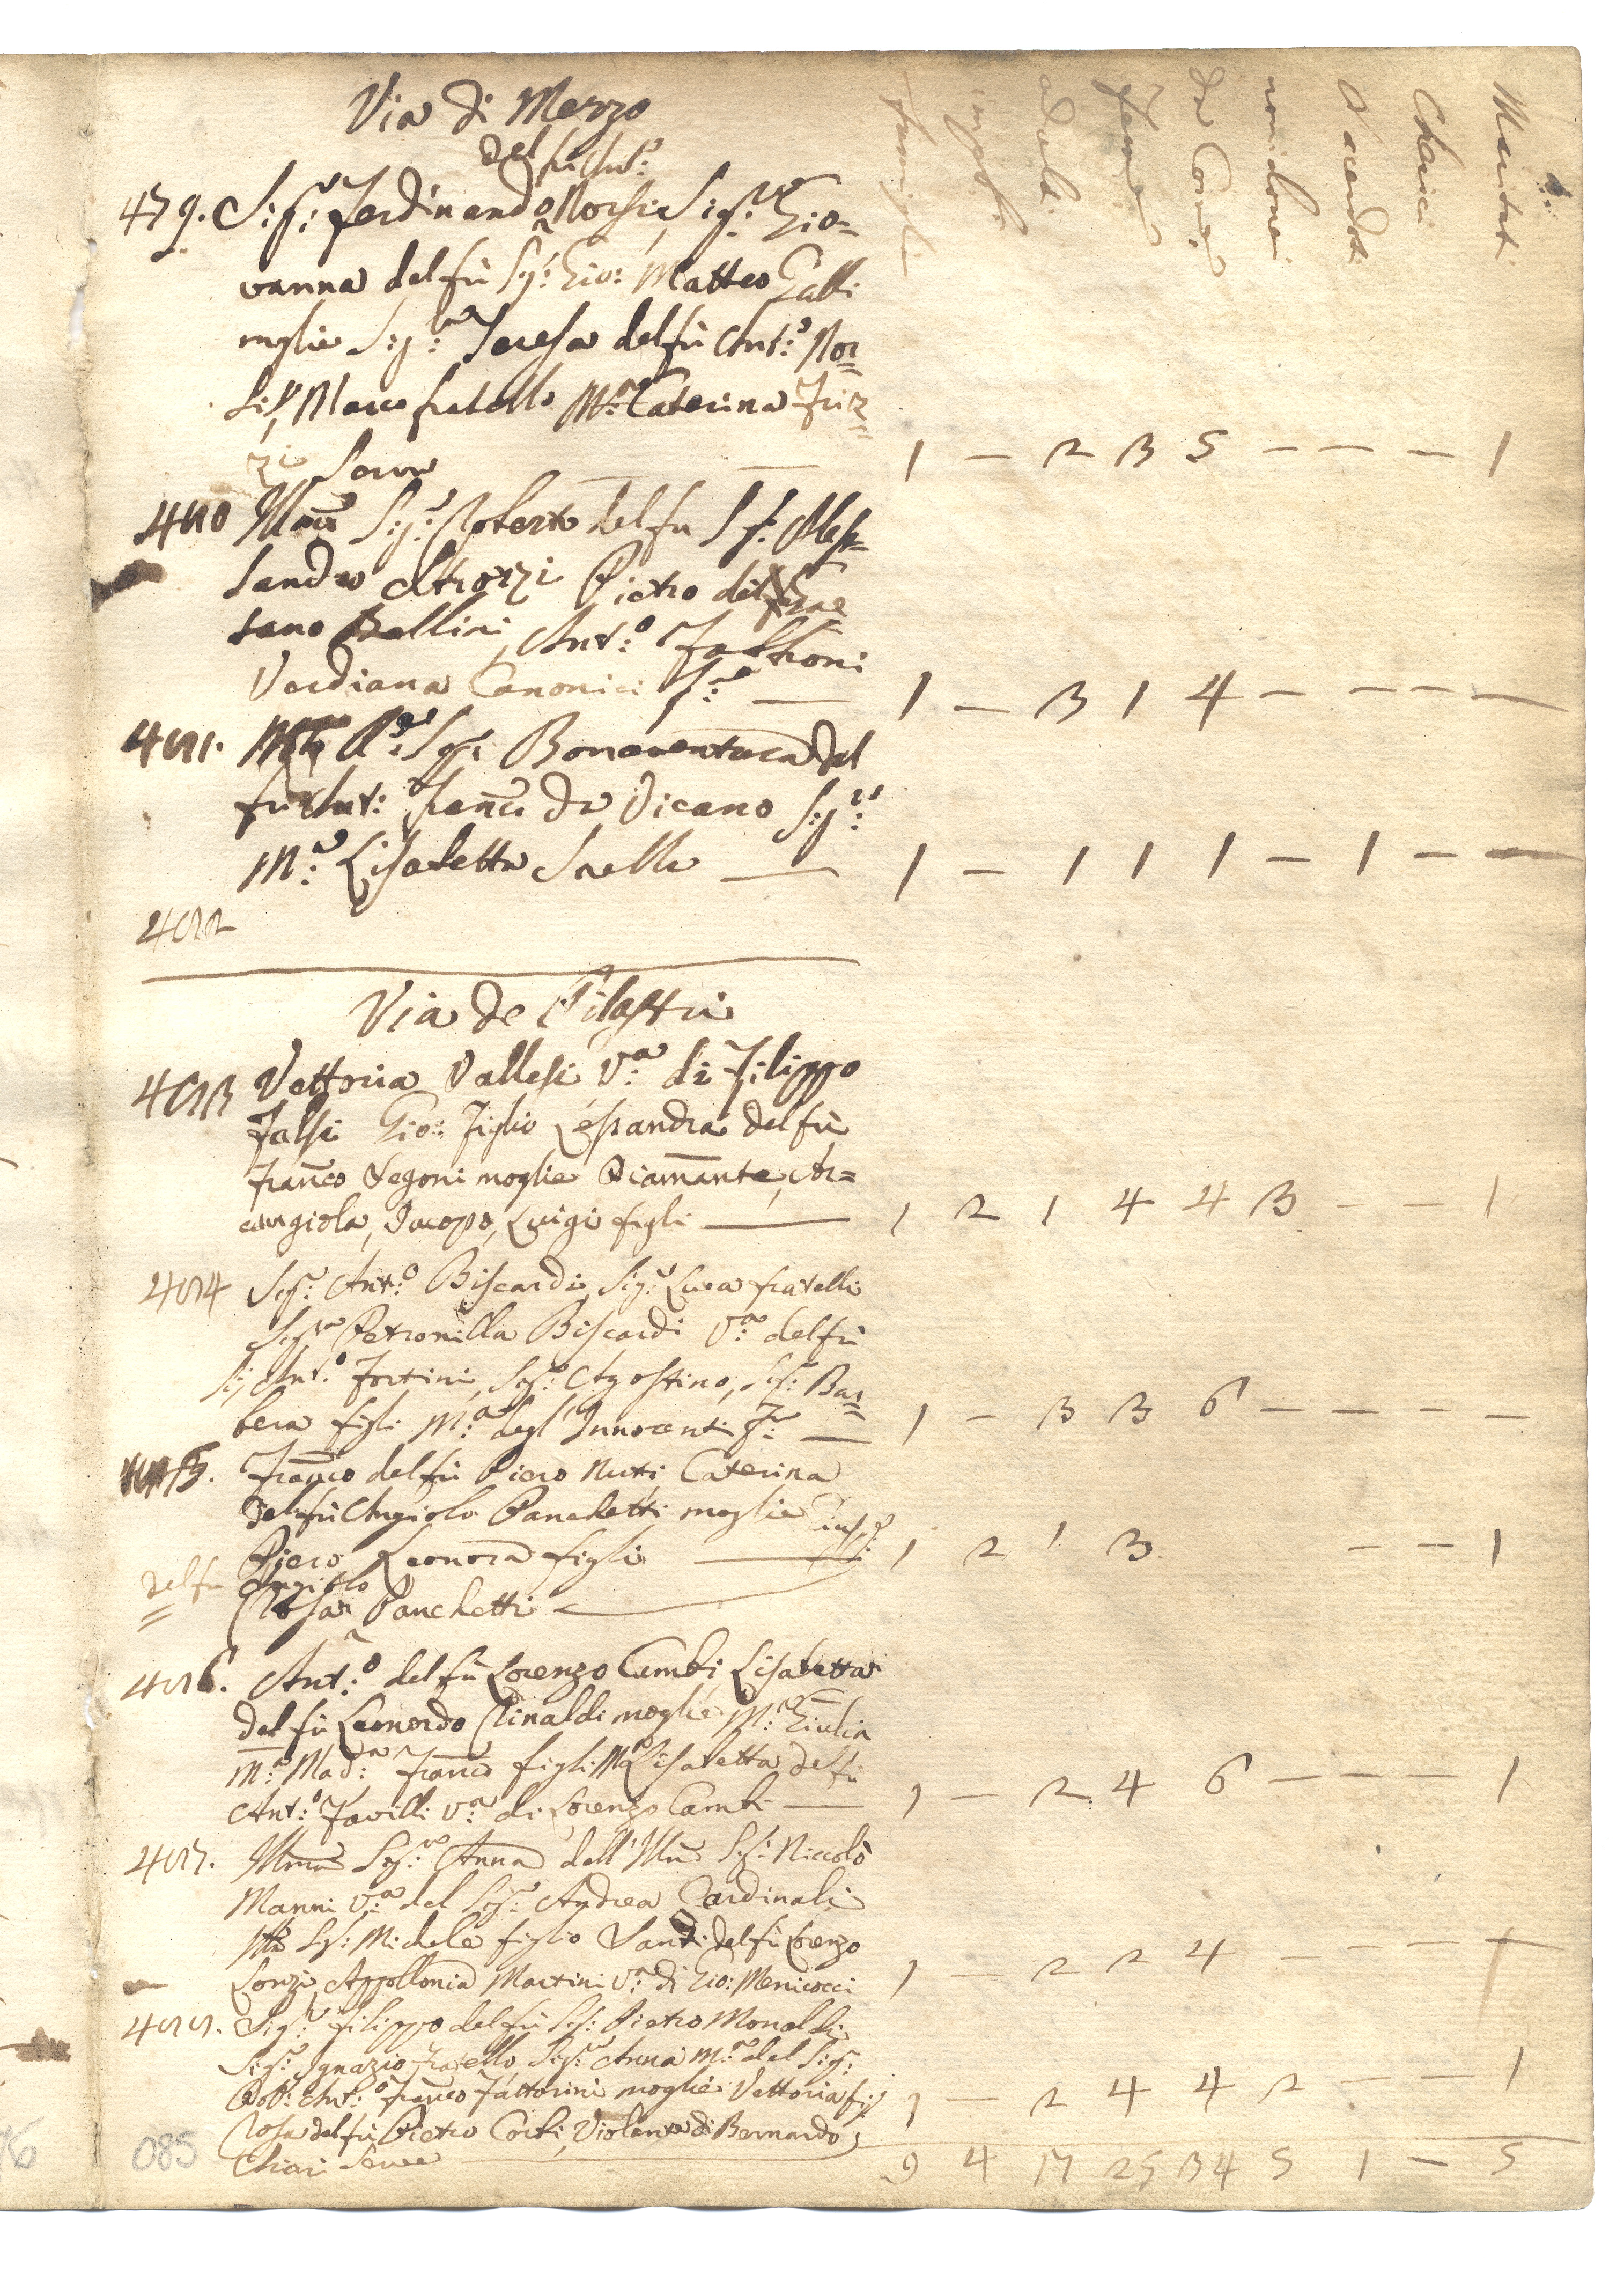 Via di Mezzo
famiglie
impub:
adulti
femine
da Comu:
non idonei
Sacerdoti
Cherici
Maritati
del fù Ant:
479. Sig: Ferdinando Norsi, Sig:ra Gio=
vanna del fù Sig: Gio: Matteo Galli
moglie Sig:ra Teresa del fù Ant:o Nor=
si, Marco fratello M:a Caterina Friz=
zi Serva — 1 — 2 3 5 — — — 1
480 Sig:r Roberto del fu Sig: Ales=
sandro Strozzi Pietro del
Bellini, Ant:o Falconi
Verdiana Canonici — 1 — 3 1 4 — — — —
481. Sig: Bonaventura del
fù Ant: Franc: da Vicano Sig:ra
M:a Lisabetta Sorella — 1 — 1 1 1 — 1 — —
482
Via de Pilastri
483 Vettoria Vallesi V:a di Filippo
Falsi Gio: figlio Lessandra del fù
Franco Segoni moglie Diamante, Ar=
cangiola, Jacopo, Luigi figli — 1 2 1 4 4 3 — — 1
484 Sig:r Ant:o Biscardi, Sig:r Luca fratelli
Sig:ra Petronilla Biscardi V:a del fù
Sig: Ant:o Fortini, Sig: Agostino, Sig: Bar=
bera figli M:a degl'Innocenti — 1 — 3 3 6 — — — —
485. Franco del fù Piero Nuti Caterina
del fù Angiolo Panchetti moglie Gius:e
Piero, Leonora figli — 1 2 1 3 — — 1
del fù Angiolo
Rosa Panchetti
486. Ant:o del fù Lorenzo Cambi, Lisabetta
del fù Leonardo Rinaldi moglie M:a Giulia
M:a Mad:a Franco figli M:a Lisabetta del fù
Ant:o Favilli V:a di Lorenzo Cambi — 1 — 2 4 6 — — — 1
487. Sig:ra Anna dell' Sig: Niccolò
Manni V:a del Sig: Andrea Cardinali
Sig: Michele figlio Santi del fù Lorenzo
Lonzi, Appollonia Martini V:a di Gio: Menicocci 1 — 2 2 4 — — — —
488. Sig:r Filippo del fù Sig: Pietro Monaldi
Sig:r Ignazio fratello Sig:ra Anna M:a del Sig:
Dott: Ant:o Franco Fattorini moglie Vettoria fig: 1 — 2 4 4 2 — — 1
Rosa del fù Pietro Corti, Violante di Bernardo
Chiari Serve — 9 4 17 25 34 5 1 — 5
085